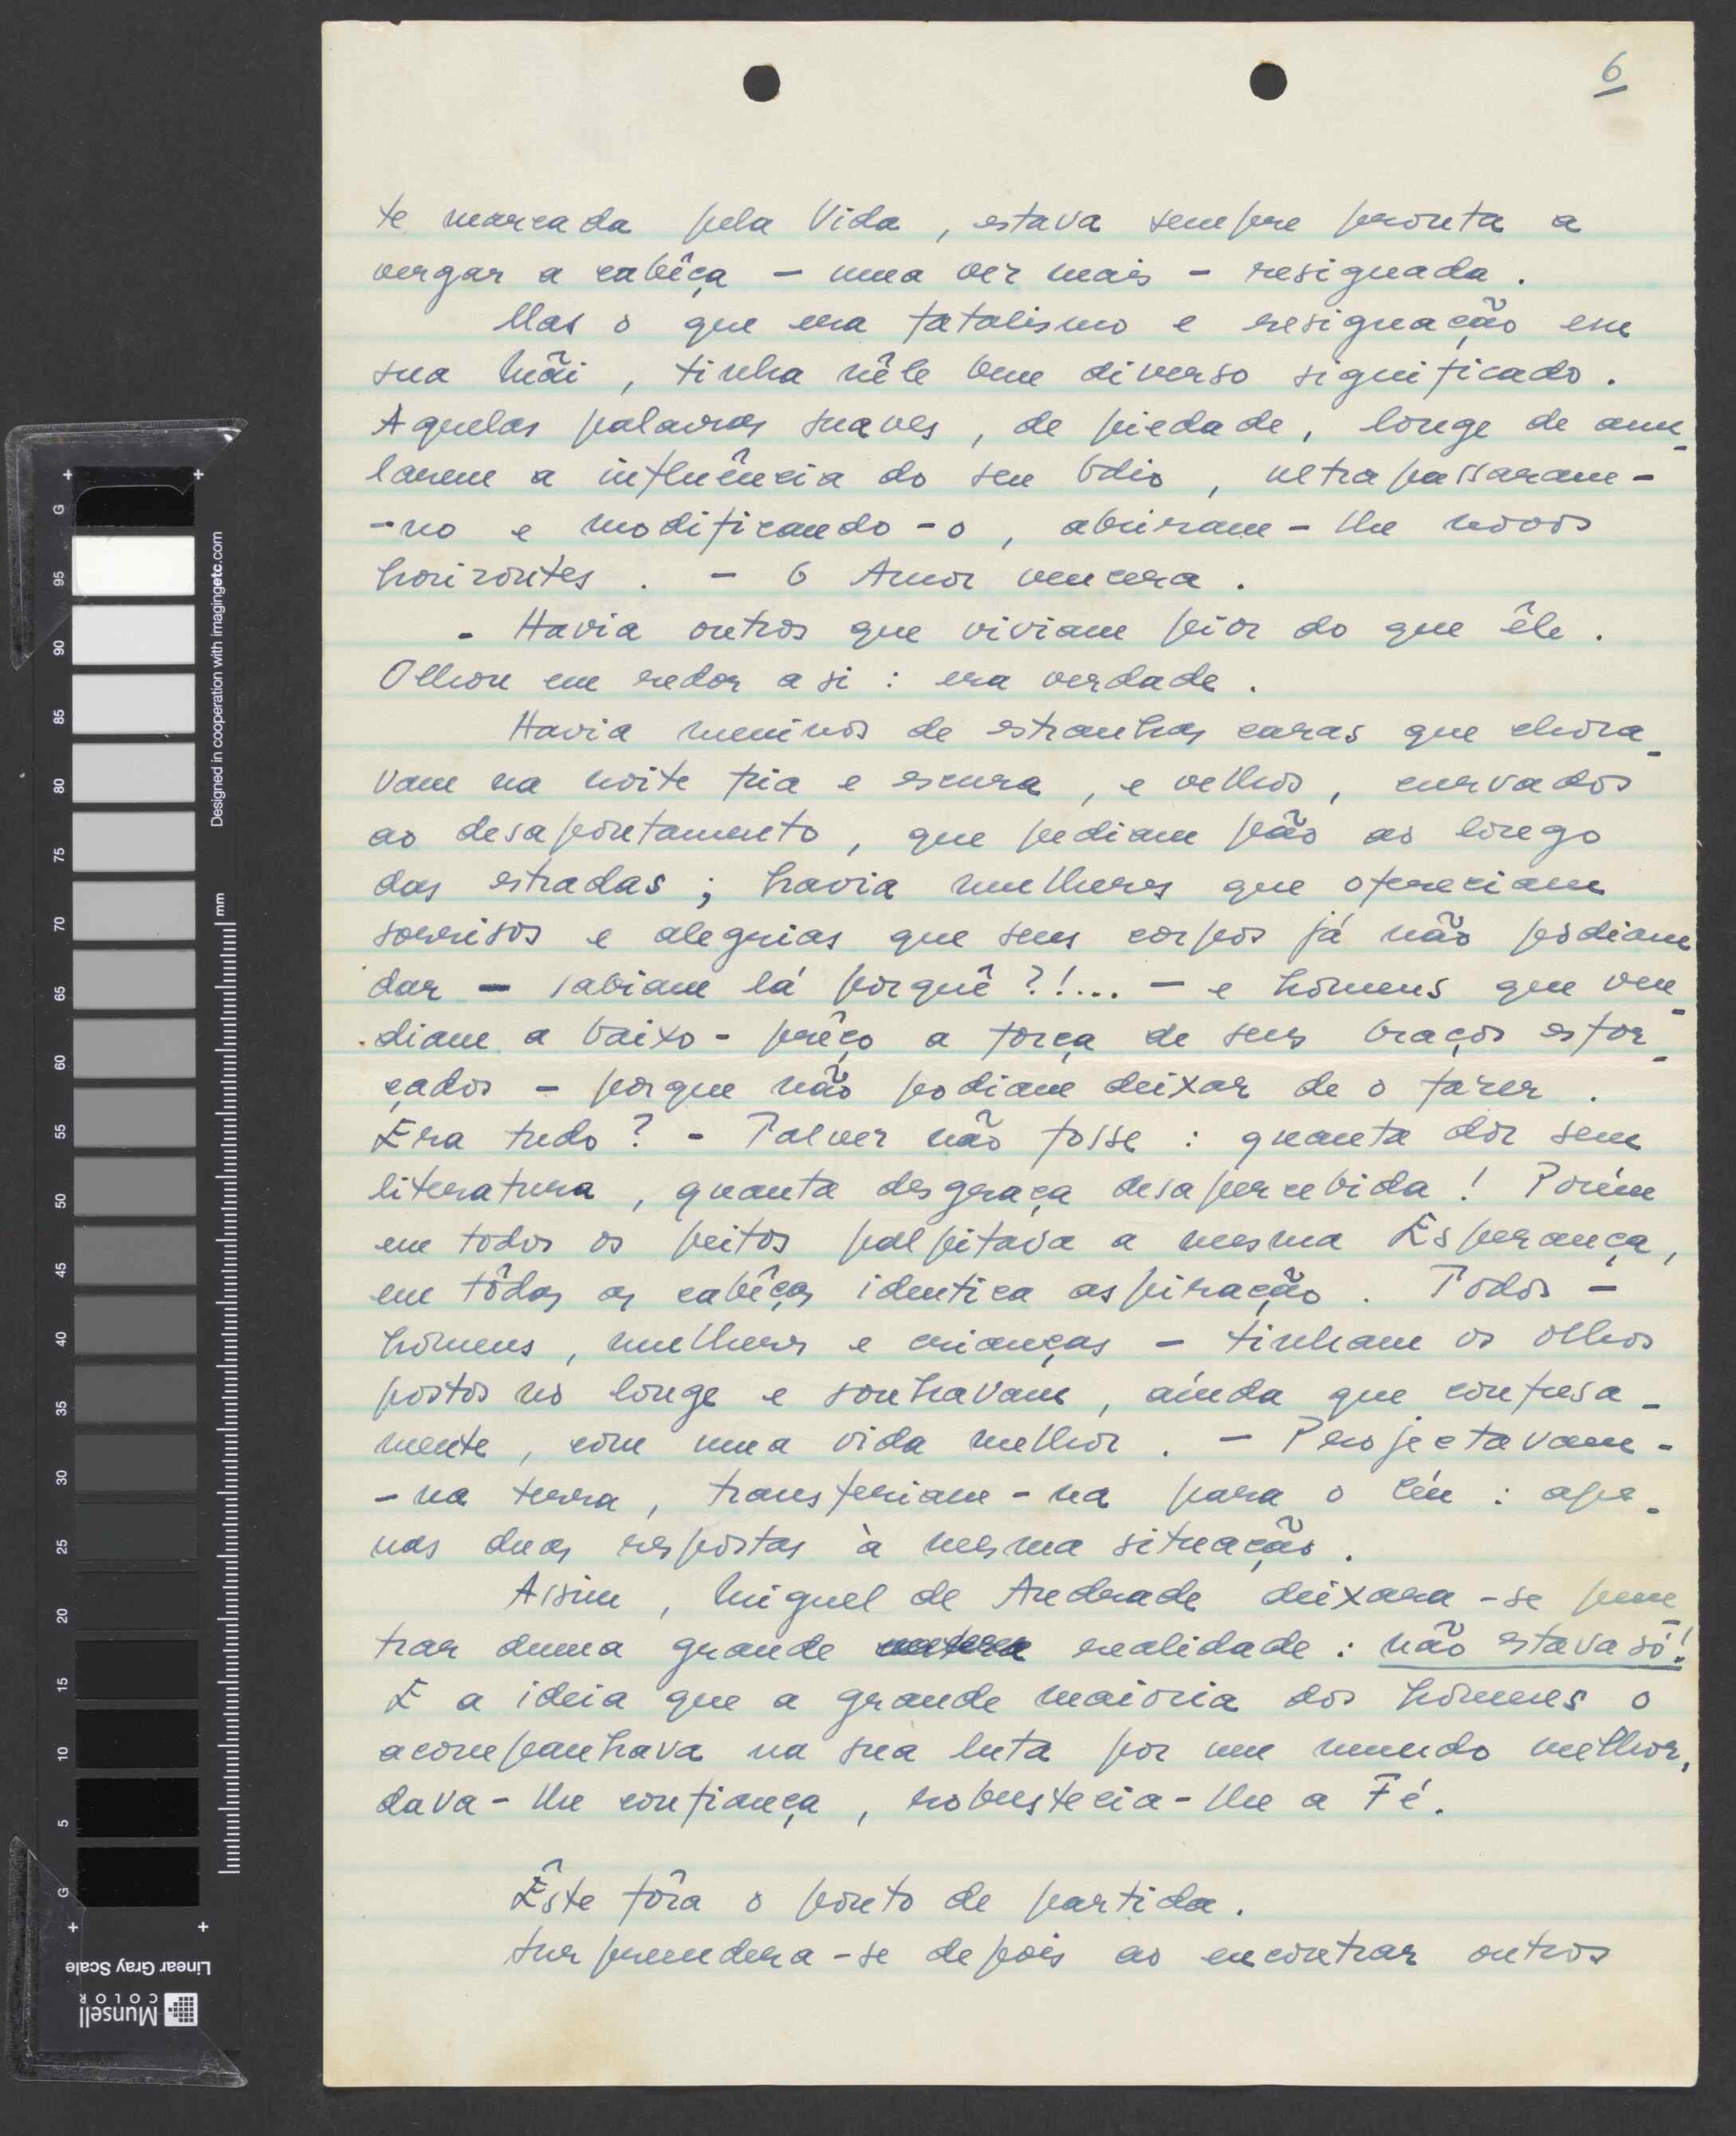 6
te marcada pela Vida, estava sempre pronta a
vergar a cabêça – uma vez mais – resignada.
Mas o que era fatalismo e resignação em
sua Mãi, tinha nêle bem diverso significado.
Aquelas palavras suaves, de piedade, longe de anu-
larem a influência do seu ódio, ultrapassaram-
-no e modificando-o, abriram-lhe novos
horizontes. – O Amor vencera.
- Havia outros que viviam pior do que êle.
Olhou em redor a si: era verdade.
Havia meninos de estranhas caras que chora-
vam na noite fria e escura, e velhos, curvados
ao desapontamento, que pediam pão ao longo
das estradas; havia mulheres que ofereciam
sorrisos e alegrias que seus corpos já não podiam
dar – sabiam lá porquê?!... – e homens que ven-
diam a baixo-prêço a força de seus braços esfor-
çados – porque não podiam deixar de o fazer.
Era tudo? – Talvez não fosse: quanta dor sem
literatura, quanta desgraça desapercebida! Porém
em todos os peitos palpitava a mesma Esperança,
em tôdas as cabêças identica aspiração. Todos –
homens, mulheres e crianças – tinham os olhos
postos no longe e sonhavam, aínda que confusa-
mente, com uma vida melhor. – Projectavam-
-na terra, transferiam-na para o Céu: ape-
nas duas respostas à mesma situação.
Assim, Miguel de Andrade deixara-se pene
trar duma grande realidade: não estava só!
E a ideia que a grande maioria dos homens o
acompanhava na sua luta por um mundo melhor,
dava-lhe confiança, robustecia-lhe a Fé.
Êste fôra o ponto de partida.
Surpreendera-se depois ao encontrar outros
Designed in cooperation with imagingetc.com
mm
G 95 90 85 80 75 70 65 60 55 50 45 40 35 30 25 20 15 10 5 G
Linear Gray Scale
Munsell
COLOR